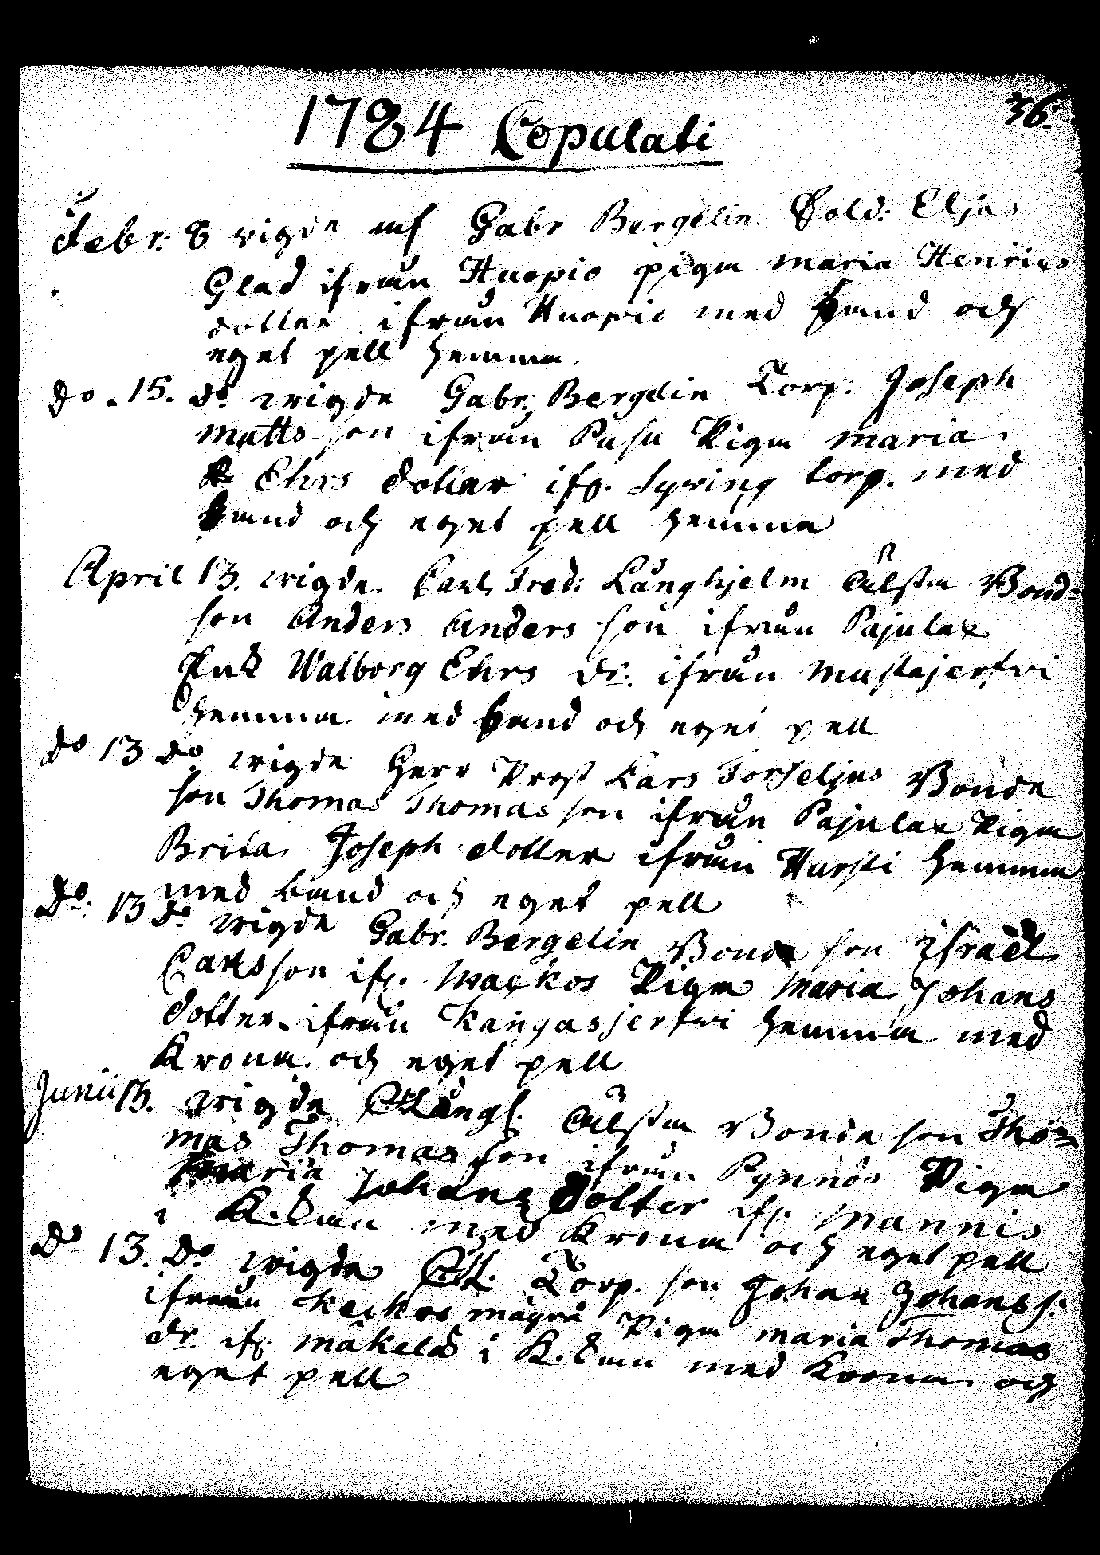 36.
1784 Copulati
Febr. 8 vigde af Gabr Bergelin Sold: Elias
Glad ifrån Kuopio pigan Maria Henrics
dotter ifrån Kuopio med band och
eget pell hemma.
do. 15. do vigde Gabr. Bergelin Torp. Joseph
Matts son ifrån Pasu Pigan Maria
Ehrs dotter ifr. Spring torp. med
band och eget pell hemma
April 13. vigde Carl Fred: Långhjelm Bond-
son Anders Anders son ifrån Pajulax
Enk Walborg Ehrs dr. ifrån Mustajerfwi
hemma med band och eget pell
do 13 do vigde Herr Prost Lars Forseljus Bonde
son Thomas Thomas son ifrån Pajulax Pigan
Brita Joseph dotter ifrån Harsti hemma
med band och eget pell
Do. 13 do vigde Gabr. Bergelin Bonde son Israel
Carlsson ifr. Wackos Pigan Maria Johans
dotter ifrån Kangasjerfwi hemma med
Krona och eget pell
Junii 13. vigde Bonde son Tho-
mas Thomas son ifrån Pynnös Pigan
Maria Johans Dotter ifr. Mannis
i med Krona och eget pell
Do 13. Do vigde Torp. son Johan Johanss.
ifrån Pigan Maria Thomas
dr. ifr. Mäkelä i med Krona och
eget pell